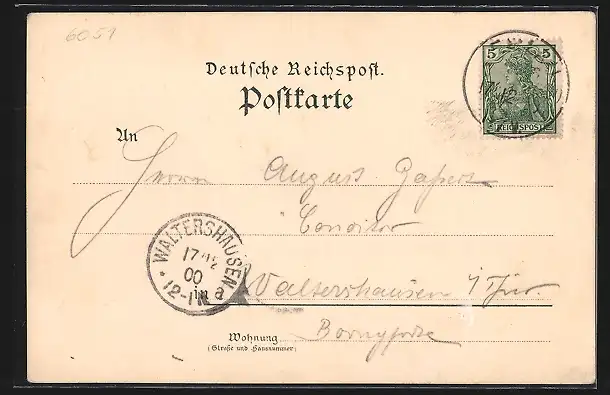 6051
5 5
REICHSPOST
Deutsche Reichspost.
Postkarte
An
Herrn August
Conditor
WALTERSHAUSEN
17 12
00
12-1N a
in Waltershausen i/Thür.
Wohnung
(Straße und Hausnummer)